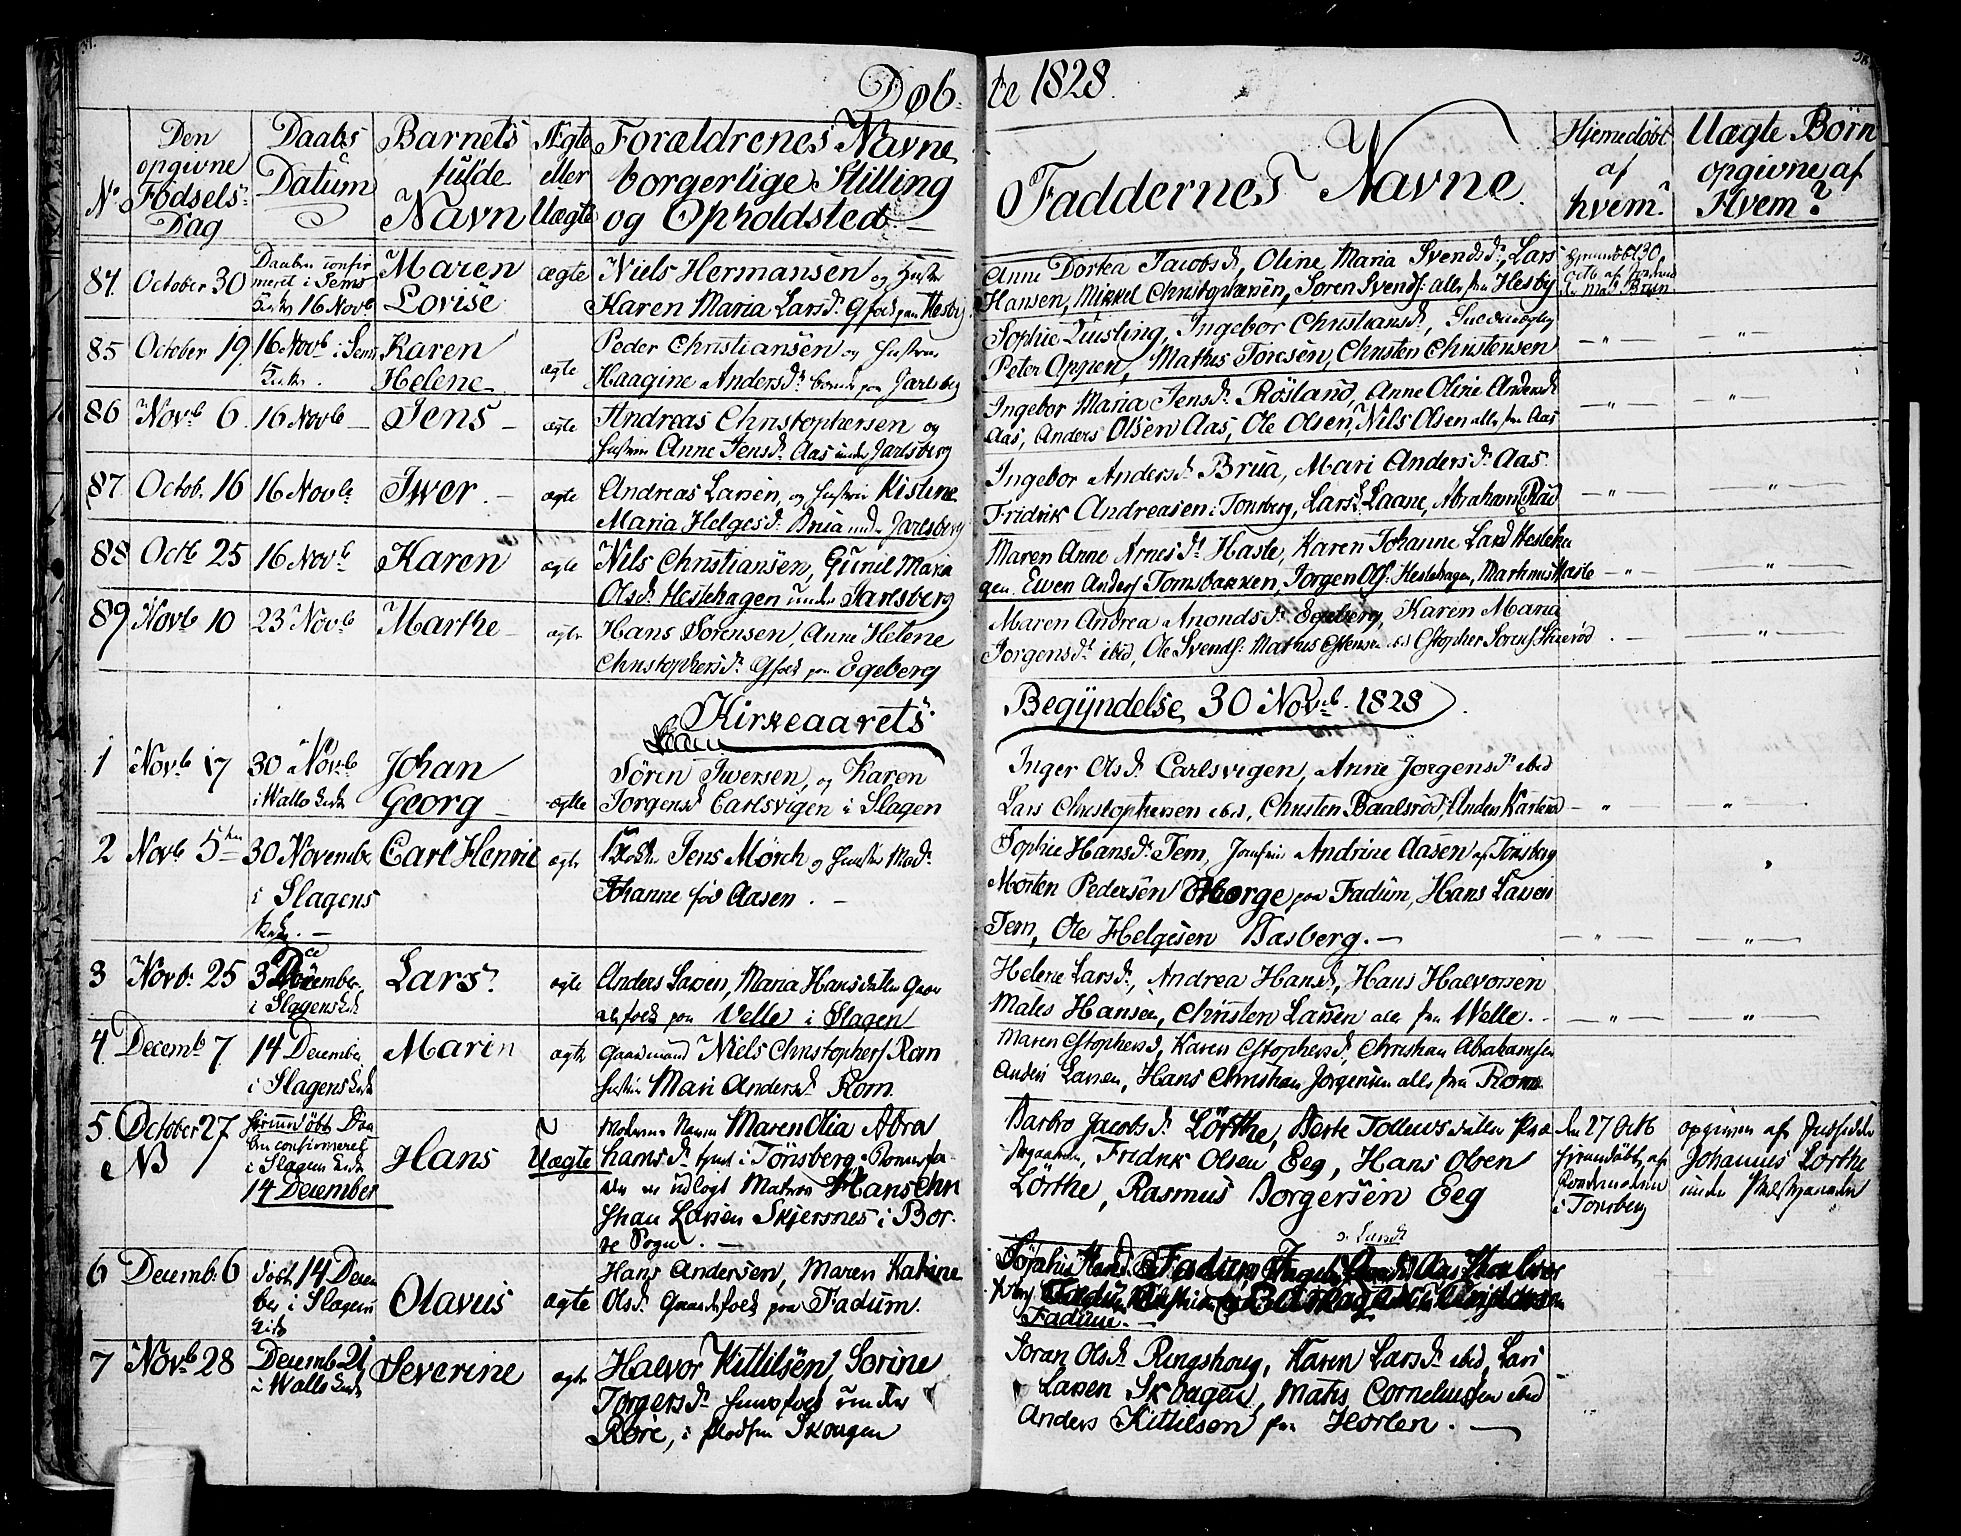 Døb-
te 1828.
No
Den opgivne Fødsels-Dag
Daabs Datum
Barnets fulde Navn
Ægte eller Uægte
Forældrenes Navne borgerlige Stilling og Opholdsted
Faddernes Navne.
Hjemedøbt af hvem?
Uægte Börn opgivne af Hvem?
84. October 30
Daaben confir
meret i Sems
16 Novb
Maren
Lovise
ægte
Niels Hermansen og Hustru
Karen Maria Larsd. Gfolk paa Hesby
Anne Dorthea Jacobsd, Oline Maria Svendsd, Lars
Hansen, Mikkel Christophersen, Søren Svends: alle fra Hesby
85 October 19.
16 Novb i Sem
Karen
Helene
ægte
Peder Christiansen og Hustrue
Haagine Andersd. paa Jarlsberg
Sophie Quisling, Ingebor Christiansd,
Peter Oppen, Mathis Toresen, Christen Christensen
86 Novb 6.
16 Novb
Jens
ægte
Andreas Christophersen og
Hustrue Anne Jensd. Aas under Jarlsberg
Ingebor Maria Jensd. Røsland, Anne Oline Andersd
Aas, Anders Olsen Aas, Ole Olsen, Nils Olsen alle fra Aas
87 Octob. 16
16 Novb
Iwer
ægte
Andreas Larsen, og Hustrue Kistine
Maria Helgesd. Brua und. Jarlsberg
Ingebor Andersd. Brua, Mari Andersd. Aas
Fridrik Andreasen i Tonsberg, Lars Laane, Abraham Rud
88 Octb 25
16 Novb
Karen
ægte
Nils Christiansen, Gunil Maria
Olsd. Hestehagen under Jarlsberg
Maren Anne Arnesd. Hasle, Karen Johanne Larsd Hesteha
gen. Ewen Anders Tomsbakken, Jorgen Ols: Hestehagen, Markus Hasle
89 Novb 10
23 Novb
Marthe
ægte
Hans Sørensen, Anne Helene
Christophersd. Gfolk paa Egeberg
Maren Andrea Anondsd. Egeberg, Karen Maria
Jorgensd. ibid, Ole Svends:
Kirkeaarets
Begyndelse 30 Novb. 1828
1 Novb 17
30 Novb
i Wallø
Johan
Georg
ægte
Søren Iwersen, og Karen
Jorgensd Carlsvigen i Slagen
Inger Olsd. Carlsvigen, Anne Jorgensd. ibid
Lars Christophersen ibid, Christen Baalsrød,
2 Novb 5
30 November
i Slagens
Kirke.
Carl Henric
ægte
Jens Mörch og Hustru Mad.
Johanne fød Aasen.
Sophie Hansd. Tem, Jomfrue Andrine Aasen af Tönsberg
Morten Pedersen paa Fadum, Hans Larsen
Tem, Ole Helgesen Basberg.
3 Novb. 25
December
i Slagens
Lars
ægte
Anders Larsen, Maria Hansdatter Gaar
defolk paa Velle i Slagen
Helene Larsd., Andrea Hansd, Hans Halvorsen
Mates Hansen, Christen Larsen alle fra Welle.
4. Decemb. 7.
14 December
i Slagens
Marin
ægte
Gaardmand Niels Christophers Rom
Hustru Mari Andersd Rom.
Maren Cstophersd, Karen Cstophersd. Christian Abrahamsen
Anders Larsen, Hans Christian Jorgensen alle fra Rom
5. October 27
NB
Hjemmedöbt Daa
ben confirmeret
i Slagens
14 December
Hans
Uægte
Moderens Navn Maren Olia Abra
hamsd. tjent i Tönsberg Barnefa-
der er udlagt Matros Hans Chri
stian Larsen Skjersnes i Bor-
re Sogn.
Barbro Jacobsd. Lörthe,
Fridrik Olsen Eeg, Hans Olsen
Lörthe, Rasmus Borgersen Eeg
den 27 Octb
hjemmedöbt af
i Tonsberg
opgiven af
Johannes Lorthe
under
6 Decemb. 6
döbt 14 Decem
ber i Slagens
Olavus
ægte
Hans Andersen, Maren Katrine
Olsd. Gaardefolk paa Fadum.
Fadum.
7 Novb 28
Decemb 21
i Wallø
Severine
ægte
Halvor Kittilsen, Sorine
Torgersd. Huusfolk under
Røre, i Skougen
Soran Olsd. Ringshoug, Karen Larsd. ibid, Lars
Larsen Skougen, Mates Corneliussen ibid
Anders Kittilsen fra Horten.